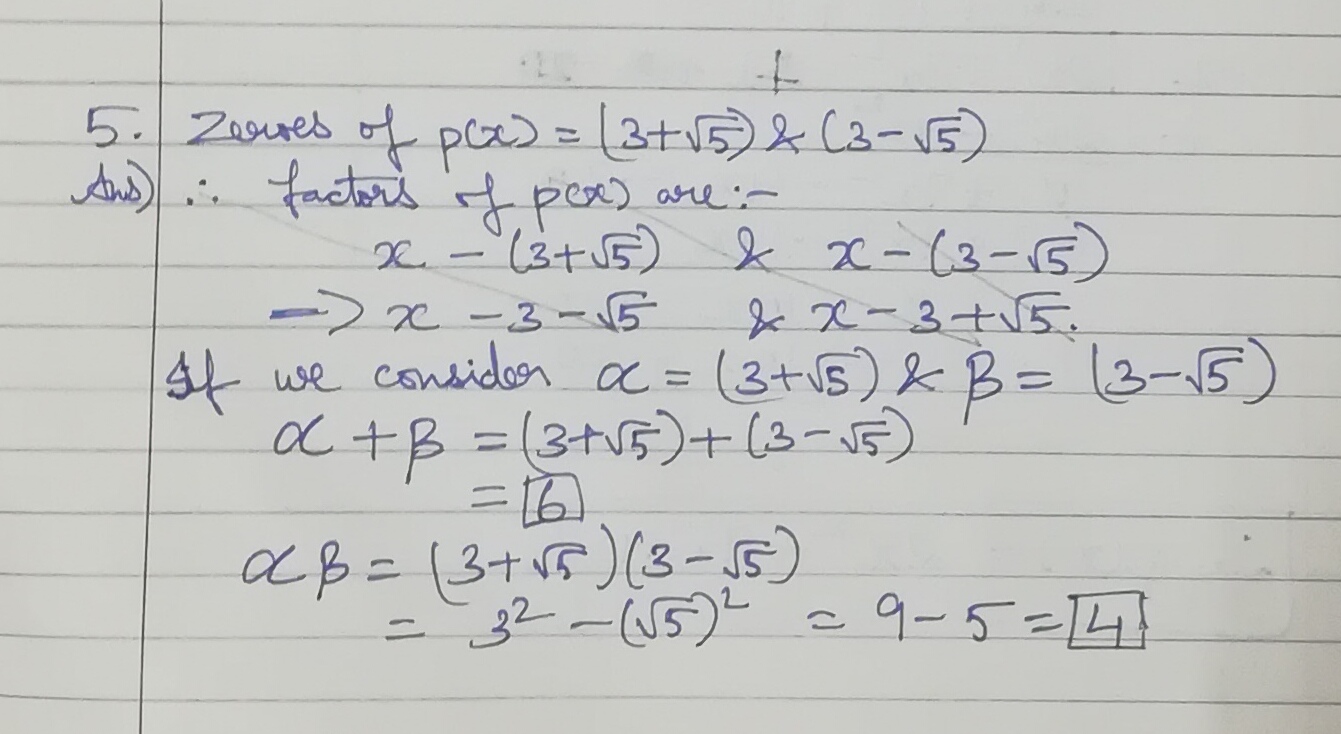 5. Zeroes of p(x) = (3+√5) & (3-√5)
Ans) ∴ factors of p(x) are:-
x - (3+√5) & x - (3-√5)
-> x - 3 - √5 & x - 3 + √5.
If we consider α = (3+√5) & β = (3-√5)
α + β = (3+√5) + (3-√5)
= 6
αβ = (3+√5)(3-√5)
= 3² - (√5)² = 9 - 5 = 4